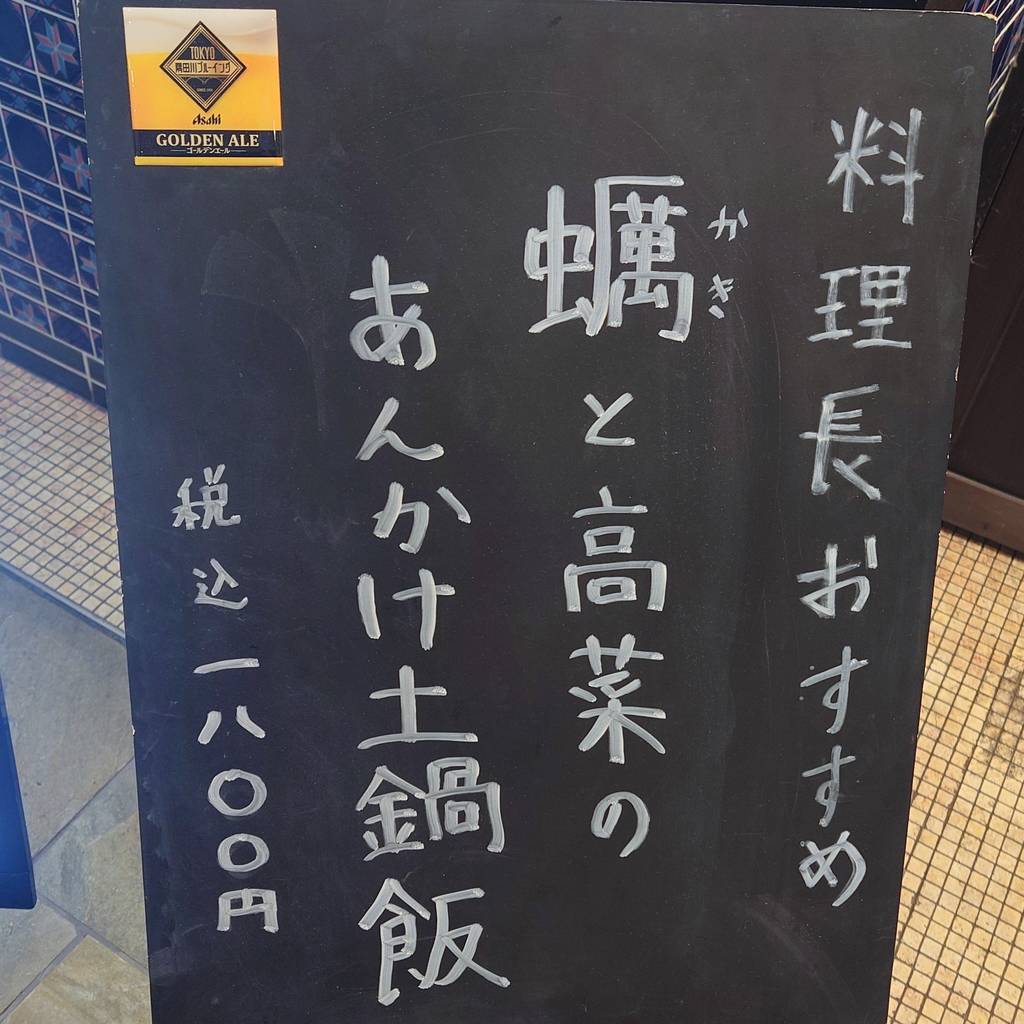 料理長おすすめ
かき
蠣と高菜の
あんかけ土鍋飯
税込一八〇〇円
TOKYO
隅田川ブルーイング
Asahi
GOLDEN ALE
ゴールデンエール